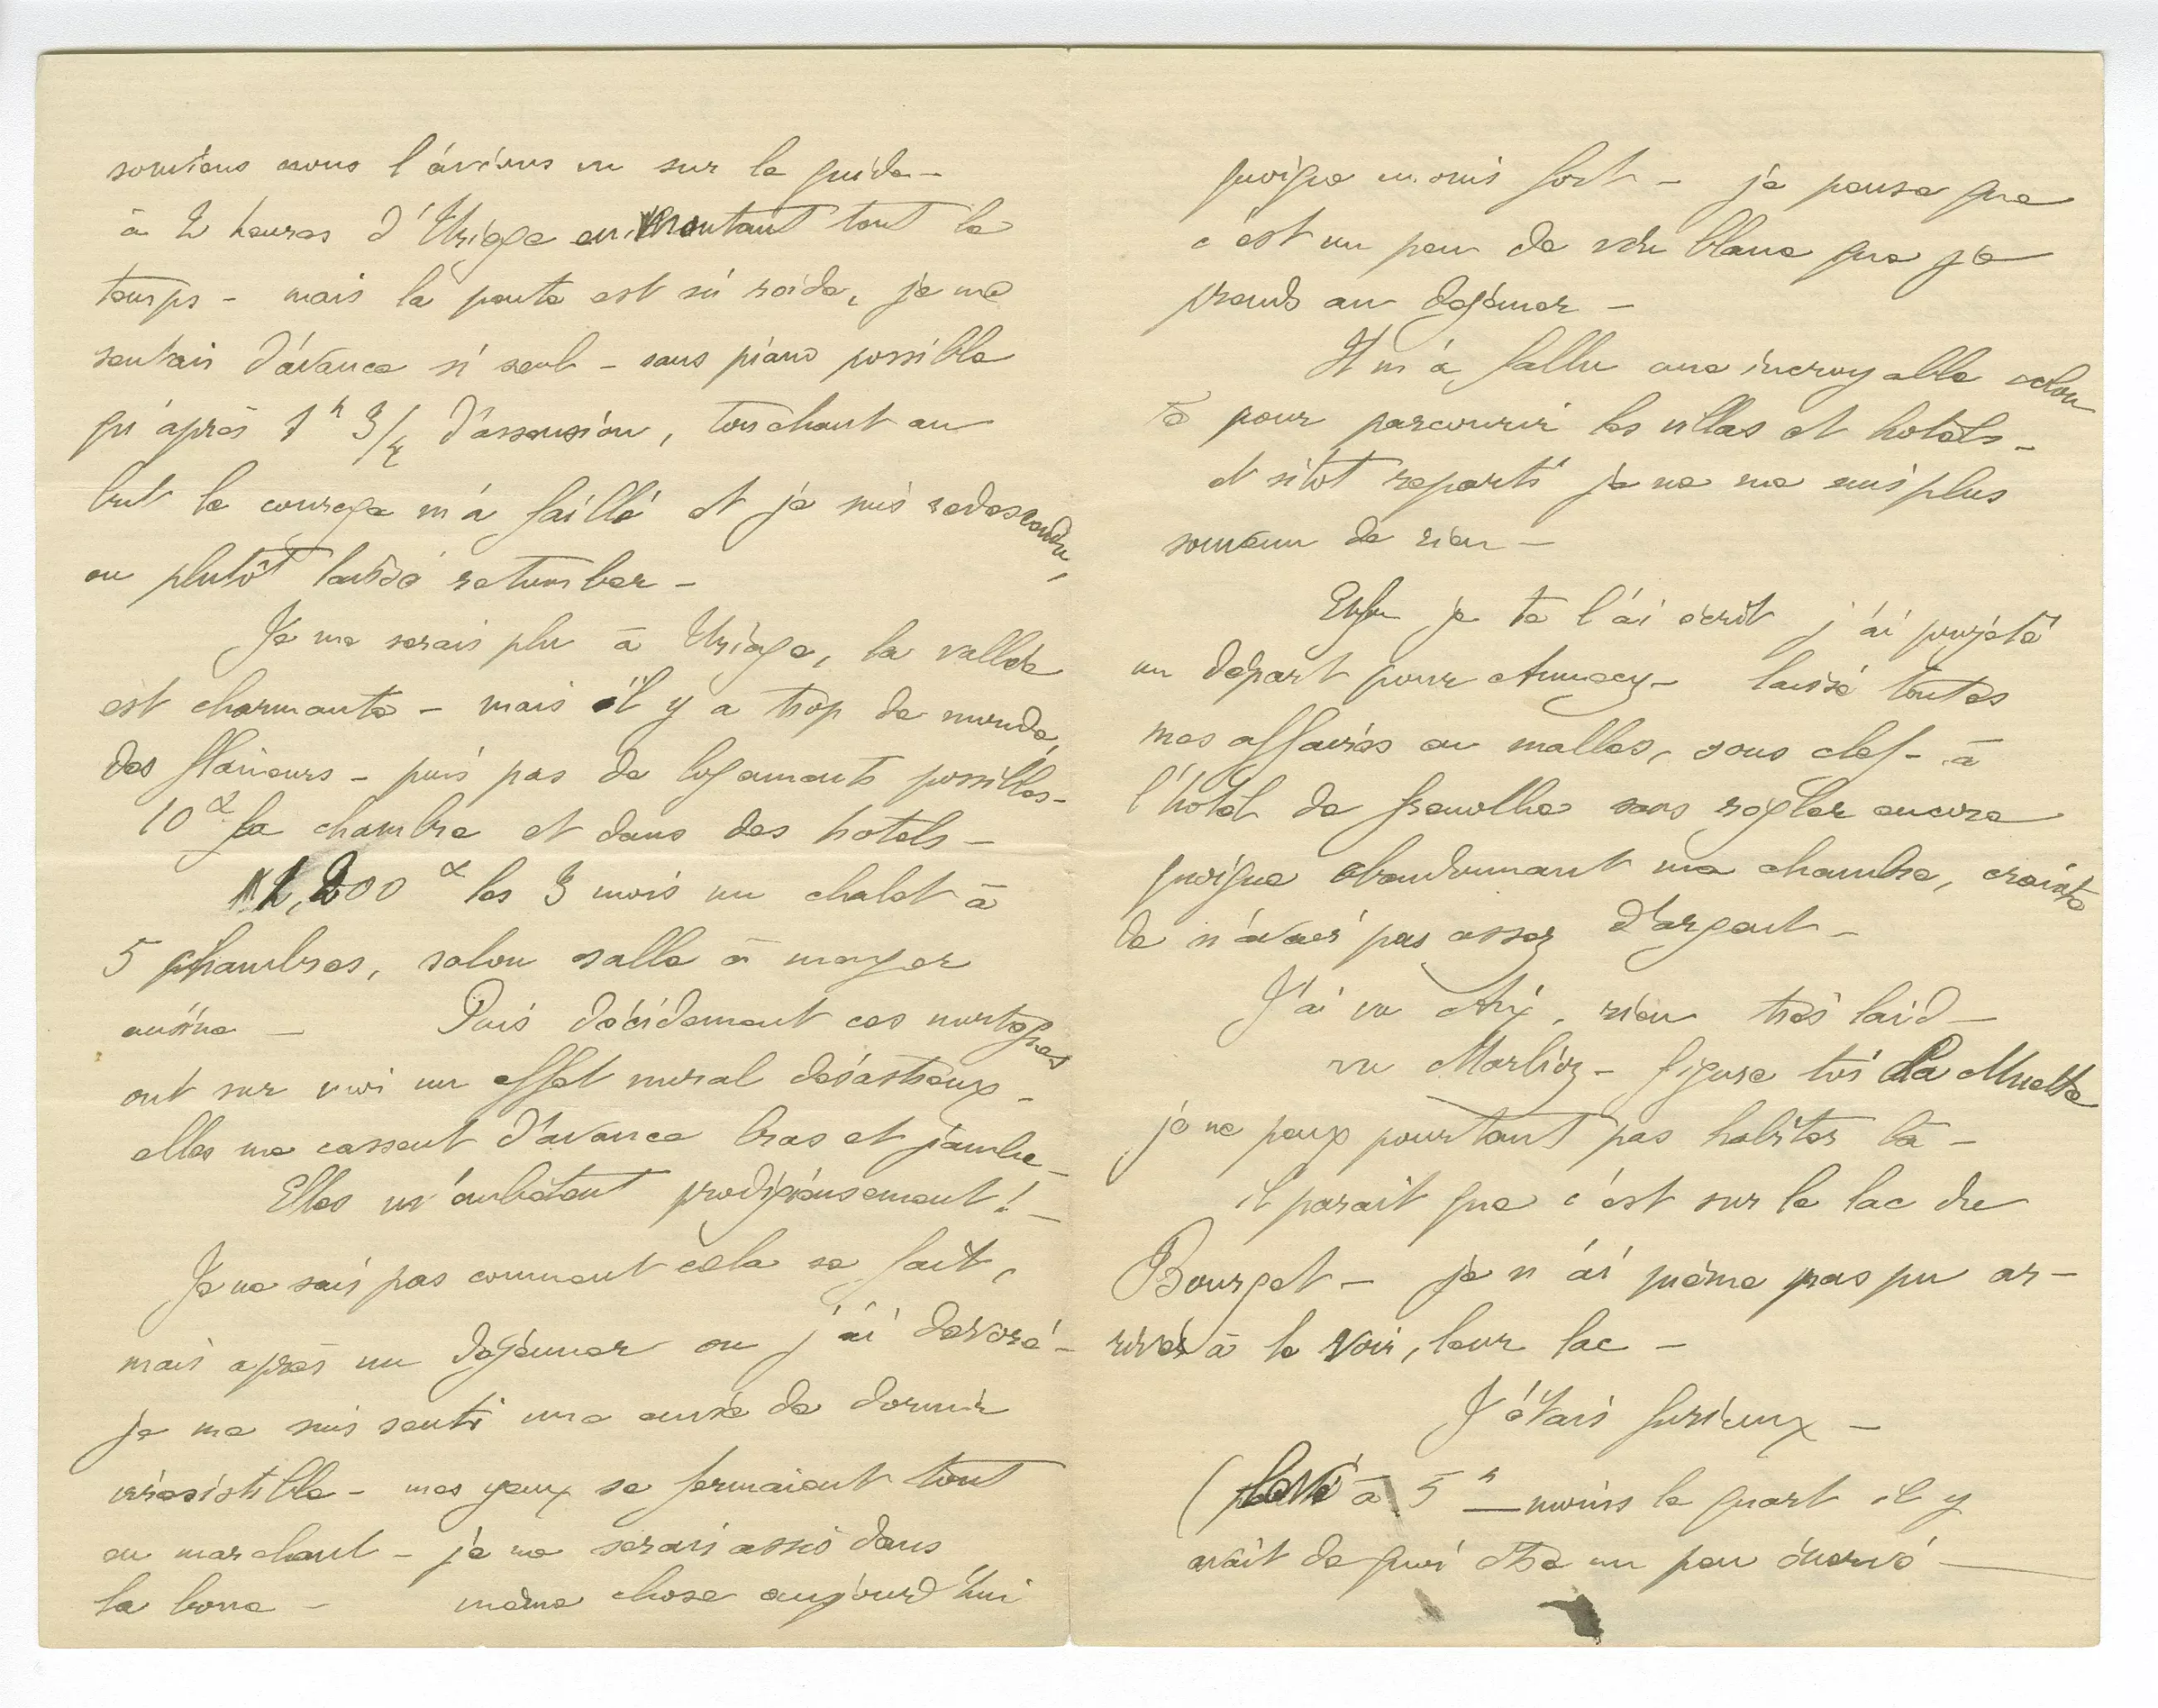 souviens nous l'avions vu sur le guide –
à 2 heures d'Uriage en montant tout le
temps – mais la pente est si roide, je me
sentais d'avance si seul – sans piano possible
qu'après 1h 3/4 d'ascension, touchant au
but le courage m'a failli et je suis redescendu,
ou plutôt laissé retomber –
Je me serais plu à Uriage, la vallée
est charmante – mais il y a trop de monde,
des flâneurs – puis pas de logements possibles –
10 la chambre et dans des hotels –
les 3 mois un chalet à
5 chambres, salon salle à manger
cuisine – Puis décidement ces montagnes
ont sur moi un effet moral désastreux –
elles me cassent d'avance bras et jambe –
Elles m'embêtent prodigieusement! –
Je ne sais pas comment cela se fait,
mais après un déjeuner ou j'ai dévoré –
je me suis senti une envie de dormir
irrésistible – mes yeux se fermaient tout
en marchant – je me serais assis dans
la boue – même chose aujourd'hui
quoique moins fort – je pense que
c'est un peu de vin blanc que je
prends au dejeuner –
Il m'a fallu une incroyable volon
té pour parcourir les villas et hotels –
et sitot reparti je ne me suis plus
souvenu de rien –
Enfin je te l'ai écrit j'ai projeté
un départ pour Annecy – laissé toutes
mes affaires en malles, sous clef – à
l'hotel de Grenoble sans regler encore
quoique abandonnant ma chambre, crainte
de n'avoir pas assez d'argent –
J'ai vu Aix, rien très laid –
vu Marlioz – figure toi La Muette
je ne peux pourtant pas habiter là –
il parait que c'est sur le lac du
Bourget – je n'ai même pas pu ar–
river à le voir, leur lac –
J'étais furieux –
(levé à 5h moins le quart il y
avait de quoi être un peu énervé –